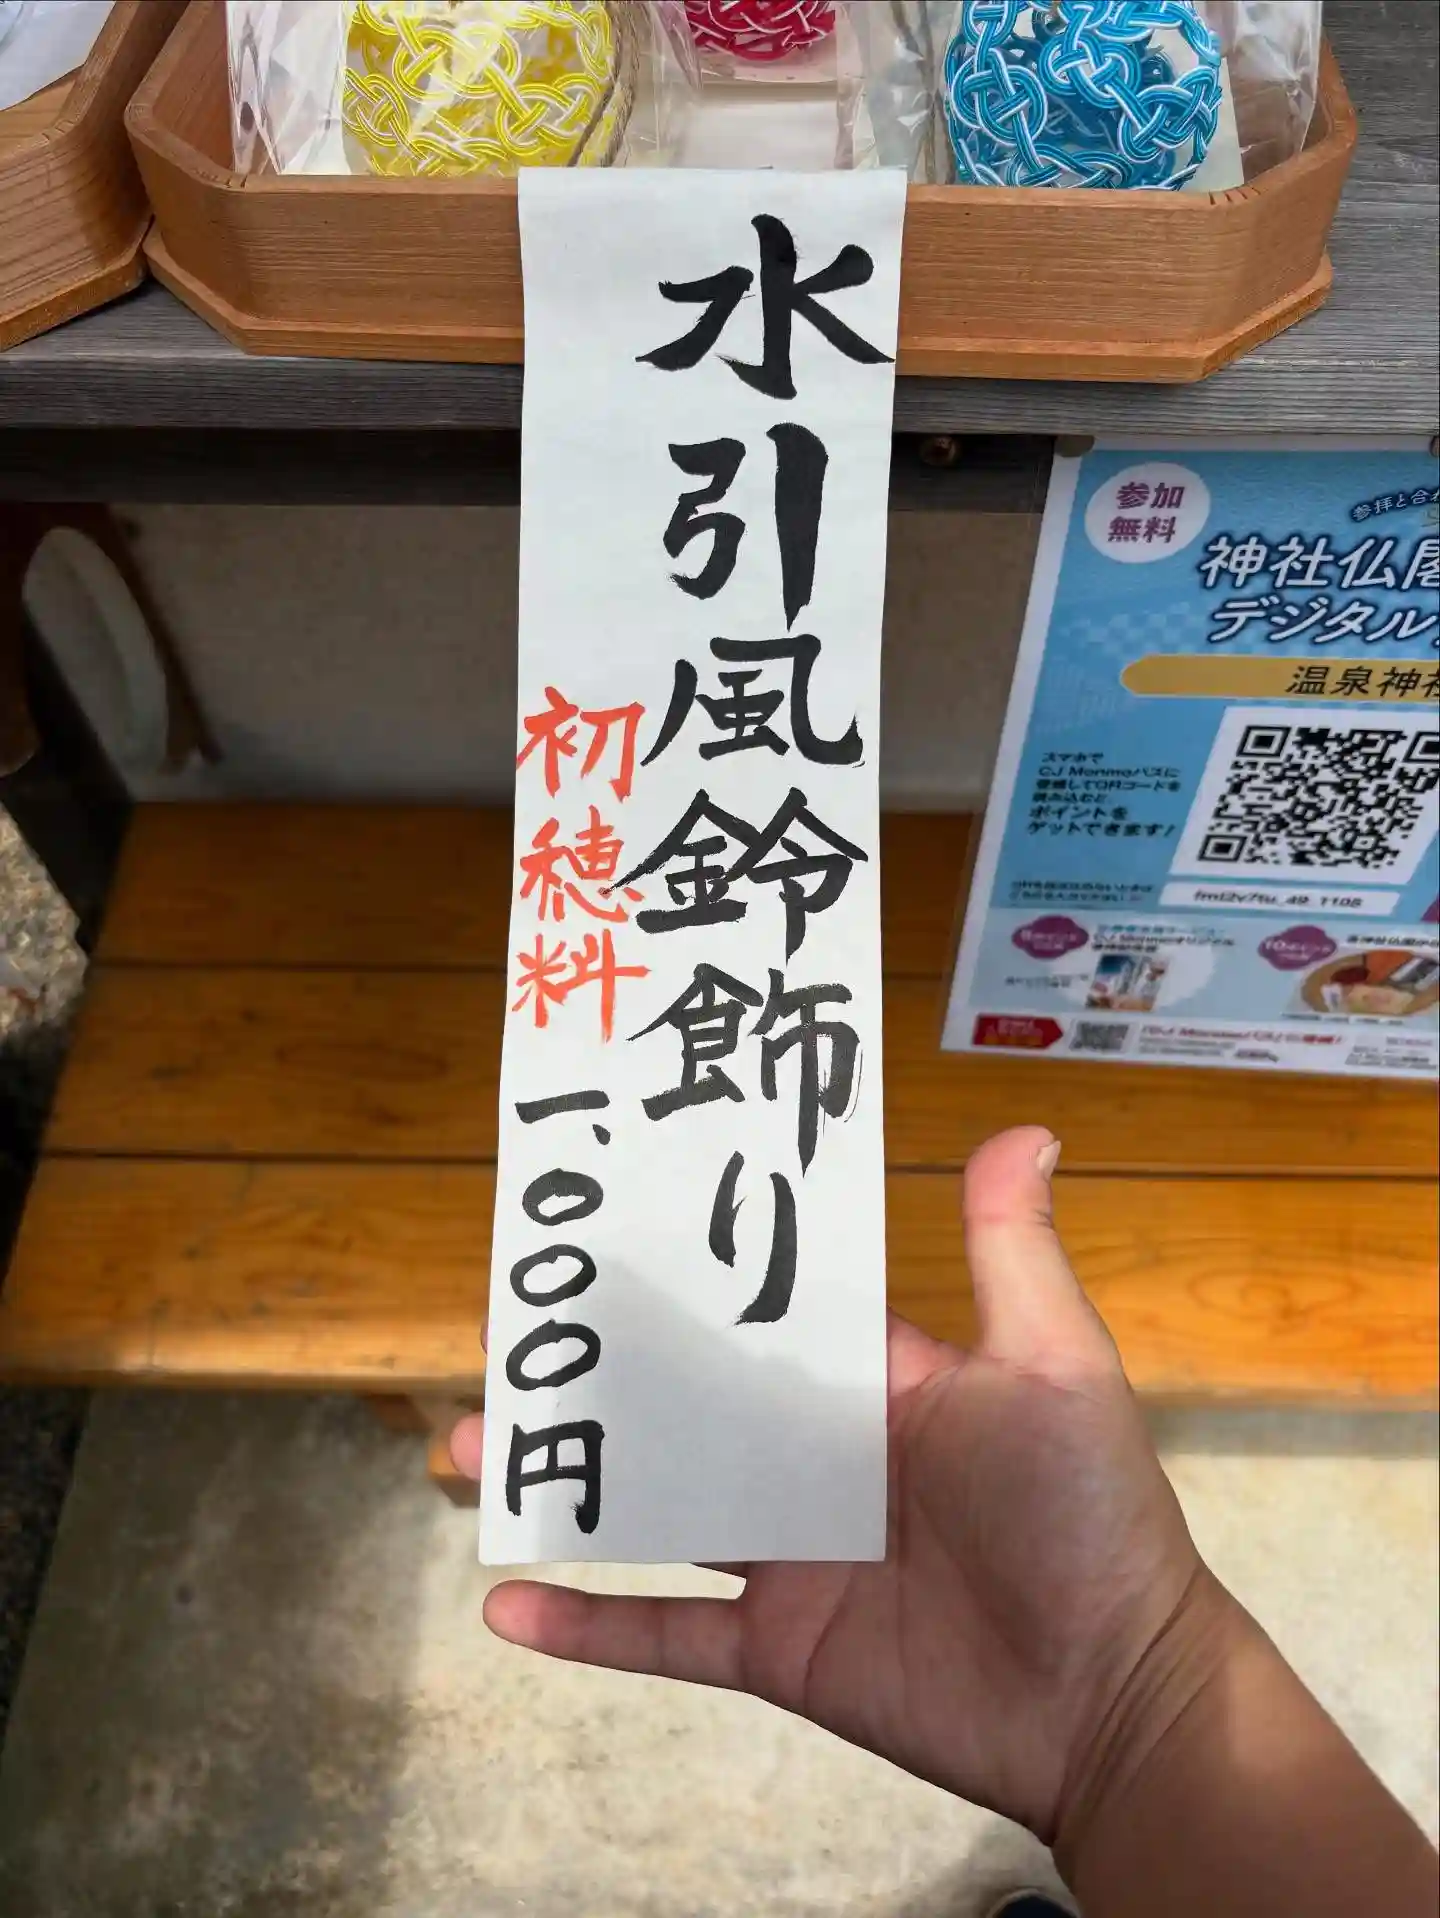 水引風鈴飾り
初穂料 一、〇〇〇円
参加
無料
参拝と合わ
神社仏閣
デジタル
温泉神社
スマホで
CJ Monmoパスに
登録してQRコードを
読み込むと
ポイントを
ゲットできます!